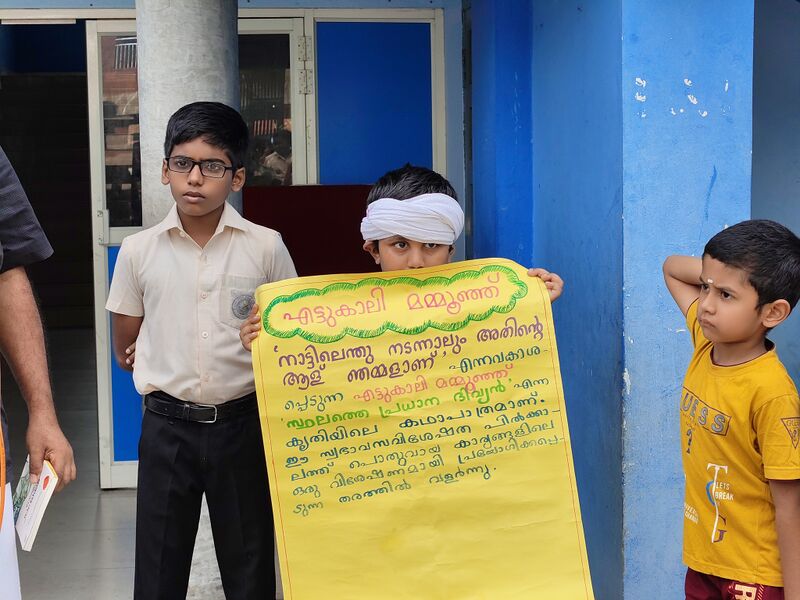 എട്ടുകാലി മമ്മൂഞ്ഞ്
'നാട്ടിലെന്തു നടന്നാലും അതിന്റെ
ആള് ഞമ്മളാണ്' എന്നവകാശ-
പ്പെടുന്ന എട്ടുകാലി മമ്മൂഞ്ഞ് എന്ന
'സ്ഥലത്തെ പ്രധാന ദിവ്യൻ'
കൃതിയിലെ കഥാപാത്രമാണ്.
ഈ സ്വഭാവസവിശേഷത പിൽക്കാ-
ലത്ത് പൊതുവായ കാര്യങ്ങളിലെ
ഒരു വിശേഷണമായി പ്രയോഗിക്കപ്പെ-
ടുന്ന തരത്തിൽ വളർന്നു.
GUESS
LETS
BREAK